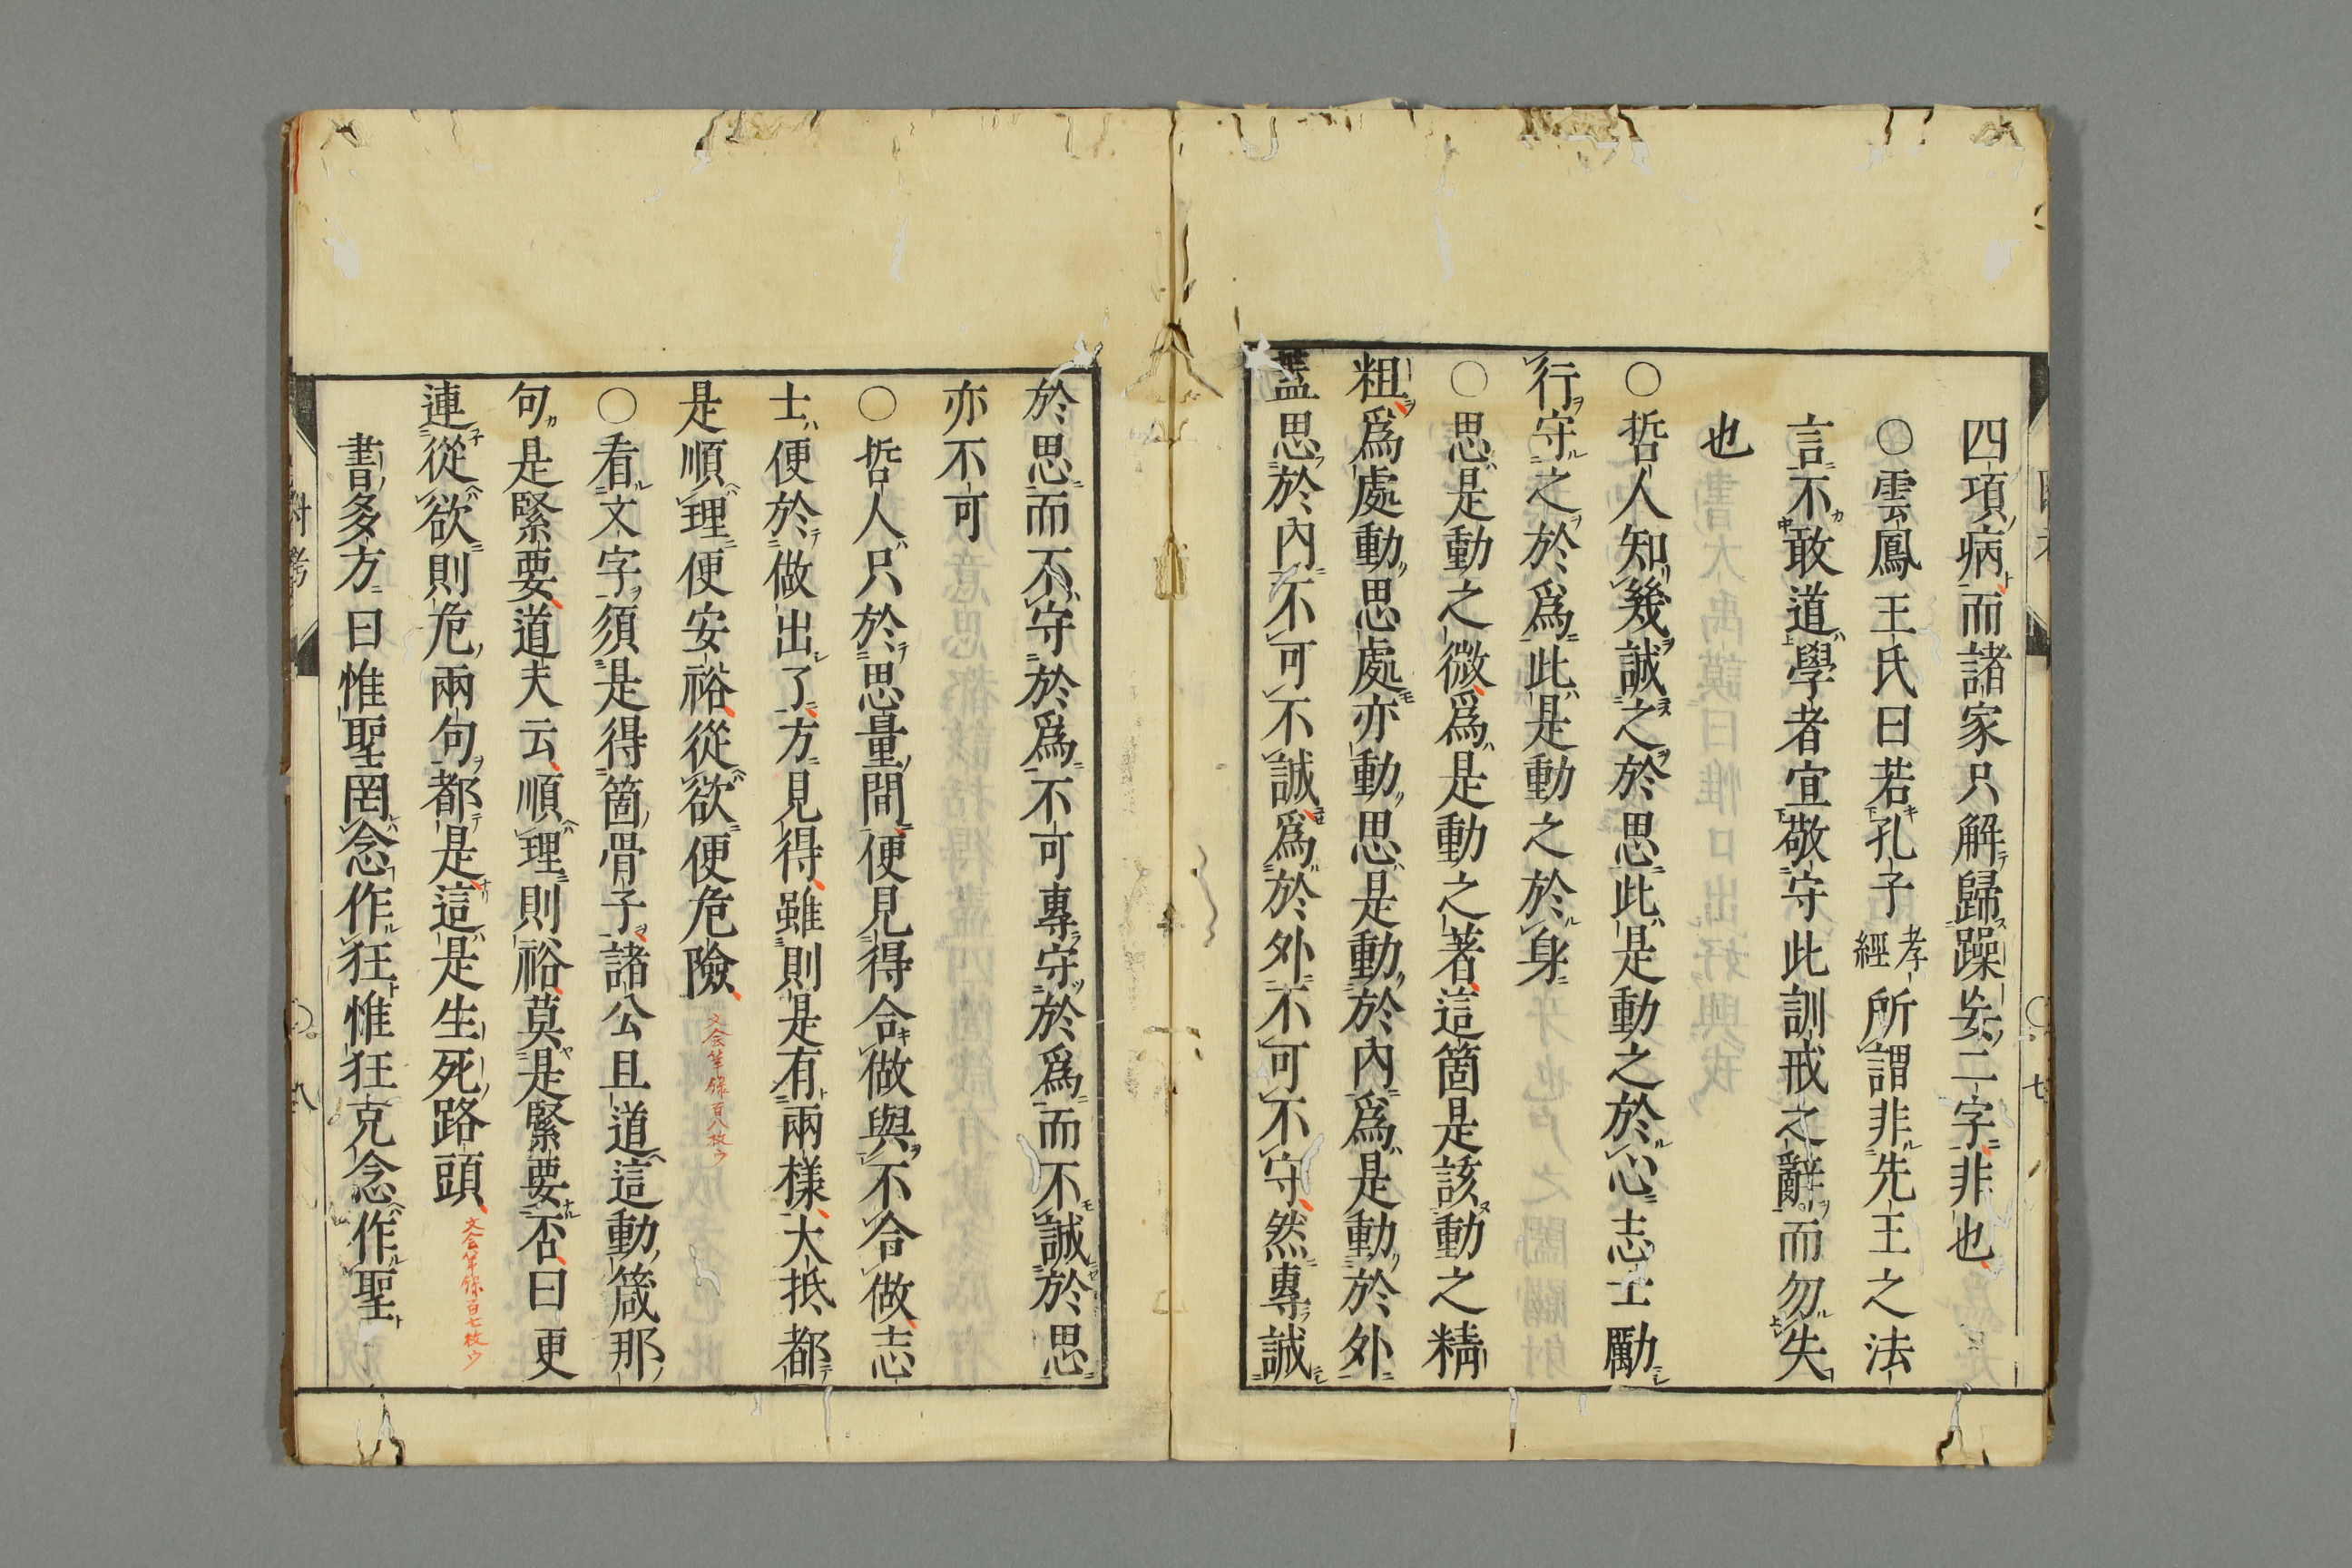 四項病而諸家只解歸躁妄二字非也
○雲鳳王氏曰若孔子孝經所謂非先王之法
言不敢道學者宜敬守此訓戒之辭而勿失
也
○哲人知幾誠之於思此是動之於心志士勵
行守之於爲此是動之於身
○思是動之微爲是動之著這箇是該動之精
粗爲處動思處亦動思是動於內爲是動於外
蓋思於內不可不誠爲於外不可不守然專誠
於思而不守於爲不可專守於爲而不誠於思
亦不可
○哲人只於思量間便見得合做與不合做志
士便於做出了方見得雖則是有兩樣大抵都
是順理便安裕從欲便危險
文会筆録百八枚ウ
○看文字須是得箇骨子諸公且道這動箴那
句是緊要道夫云順理則裕莫是緊要否曰更
連從欲則危兩句都是這是生死路頭
文会筆録百七枚ウ
書多方曰惟聖罔念作狂惟狂克念作聖
附考
八